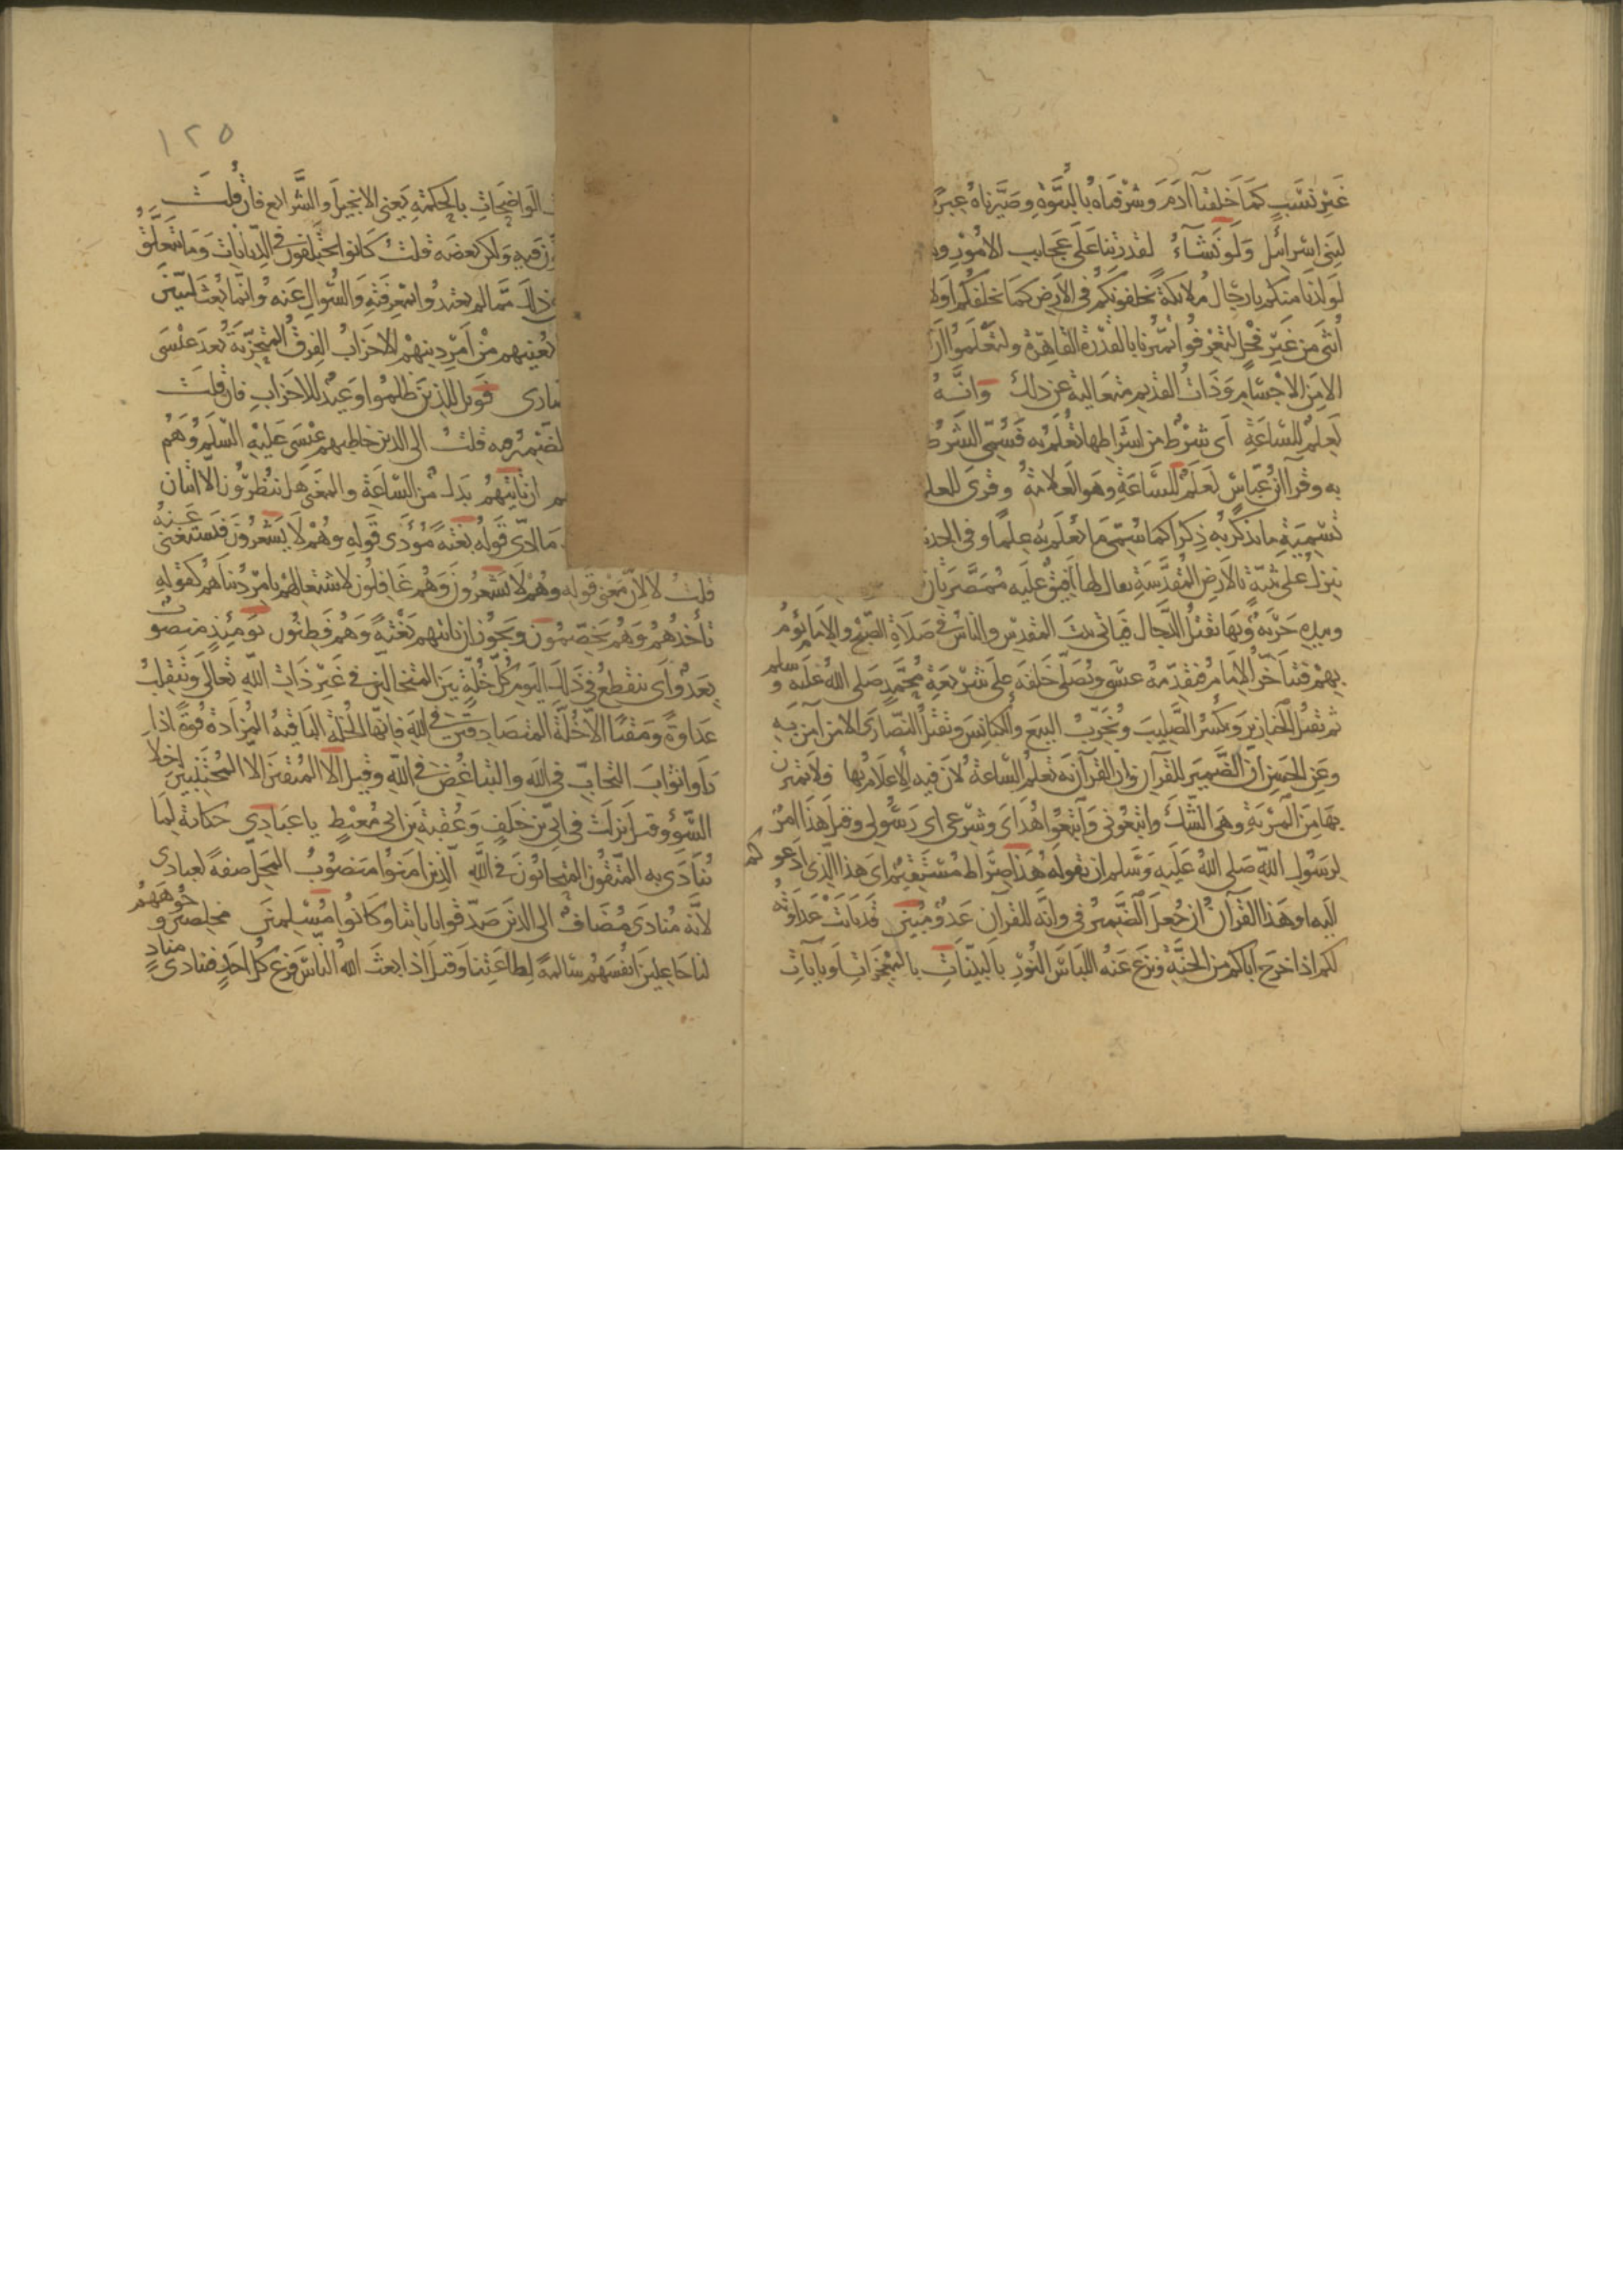 غَيْرِ تَسَبُّبٍ كمَا خَلقنا آدَمَ وشرّفناه بالنُّبُوّةِ وصَيَّرناهُ عِبرةً
لِبَنى اسْرائيل وَلَو نَشاءُ لقدرتنا عَلى عَجايبِ الامُوْرِ
لَولّدْنا منكم يا رجَال ملائكةً يخلفونكم فى الارضِ كمَا يخلفكم اولا
اُنثى مِن غيْرِ فَحْلٍ لتعْرفُوا تميّزنا بالقدْرة القاهِرة ولتعْلَمُوا انّ
الا مِن الاجْسَامِ وَذَاتُ القدِيمِ متعالية عن ذلك وَانَّهُ
لَعِلمٌ للسَّاعَةِ اى شرْطٌ من اشراطِها تُعْلَم به فَسُمّى الشَّرط
به وقرأ ابن عبّاسٍ لَعَلَمٌ للسَّاعَةِ وهوَ العَلامَةُ وقرئ للعلم
تسْمِيَةِ ما يذكر به ذِكرًا كما سُمّى مَا يُعْلَم به عِلمًا وفى الحد
ينزلُ على ثنيّةٍ بالارضِ المُقَدَّسَةِ يقال لها افِيْقٌ عليه مُمَصَّرَتَانِ
وبيده حَرْبَةٌ وبها يقتلُ الدَّجال فياتى بيتَ المقدِسِ والناسُ فى صَلاةِ الصُّبْحِ والامَامُ يَؤُمُ
بِهِمْ فيتأخّرُ الامَامُ فيقدّمهُ عيسَى ويُصَلّى خَلفهُ عَلى شرِيعَةِ مُحَمَّدٍ صَلى اللهُ عَليْه وسلم
ثم يقتلُ الخنازِيرَ ويكسُر الصَّلِيبَ ويُخَرّبُ البِيَع والكنائِسَ ويقتلُ النَّصَارَى الا من آمَن بِهِ
وعَنِ الحَسَنِ انّ الضَّميرَ للقرآن وان القرآنَ به تعلمُ السَّاعَةُ لانّ فيهِ الاعلامَ بها فلا تمترنّ
بهَا مِنَ المِرْيَةِ وهى الشَّكّ واتبعُونى وَاتّبعُوا هُدَاى وشرْعى اى رَسُولى وقيلَ هَذَا امرٌ
لِرَسُولِ اللهِ صَلى اللهُ عَليَهِ وَسَلم ان يقوله هَذَا صِرَاطٌ مُسْتَقِيْمٌ اى هَذا الذى ادْعو كم
اليه او هَذا القرآنُ ان جُعلَ الضَّميرُ فى وانّه للقرآن عَدُوٌّ مُبِيْنٌ قدْ بَانَتْ عَدَاوَتُه
لكم اذا خرَج اباكم من الجنّةِ ونزعَ عَنه اللبَاسَ النُّوْر بالبَيّنَاتِ بالمعْجِزَاتِ او بآيَاتِ
١٢٥
الوَاضِحَاتِ بالحِكمَةِ يَعنى الانجيلَ والشَّرايع فان قُلتَ
فيهِ ولكن بَعضَه قلتُ كانوا يختلفون فى الدّيَانَاتِ وَمَا يتعَلّقُ
ذلك ممّا لم يتعبّدُوا بمعْرِفَتِهِ والسُّؤالِ عَنه وانّما بُعث ليُبَيّنَ
يُعْنِيهم مِنْ امْرِ دِينِهمْ الاحزَابُ الفِرَقُ المُتحَزّبَةُ بَعدَ عيْسَى
صَارى فوَيلٌ للذِينَ ظلمُوا وَعِيدٌ للاحْزَابِ فان قلتَ
الضّمِيْرُ مِه قلتُ الى الذين خاطبهم عيْسَى عَليْهِ السَّلامُ وهُم
ان تاتيَهُم بَدلٌ مِن السَّاعَةِ والمعنى هل ينظرُون الا اتيَان
مَا ادّى قولهُ بَغْتَةً مُؤَدّى قولِهِ وهُمْ لا يَشْعُرُونَ فَيستغنى عَنهُ
قلتُ لا لانّ معْنى قوله وهُمْ لا يَشْعُرونَ وَهُم غَافِلُون لاشتغالِهم بامْرِ دُنيَاهُم كقولِهِ
تأخذُهُمْ وَهُمْ يَخِصّمُونَ ويَجُوز ان تاتيهم بَغْتةً وَهُم فَطِنُون يَوْمَئِذٍ منصوبٌ
بِعَدُوٌّ اى تنقطعُ فى ذَلك اليَومِ كُلُّ خُلّةٍ بيْنَ المُتخالّينَ فى غيْرِ ذَاتِ اللهِ تعَالى وتَنْقلِبُ
عَدَاوَةً وَمَقْتًا الا خُلّةَ المتصَادِقِيْنَ فى اللهِ فانّهَا الخُلّةُ البَاقِيَةُ المُزدَادَةُ قوّةً اذا
رَاَوا ثوَابَ التحَابّ فى اللهِ والتبَاغُضِ فى اللهِ وقيلَ الا المُتقين الا المُجْتَنِبِيْنَ اخلا
السُّوْءِ وقيل نزَلتْ فى اُبَىّ بنِ خَلفٍ وَعُقبَةَ بنِ ابى مُعَيْطٍ يا عبَادِى حكايَةٌ لِمَا
يُنَادَى به المُتّقُونَ المُتحابّونَ فى اللهِ الذِينَ امَنُوا مَنصُوبُ المَحَلّ صِفةً لعِبادى
لانّه مُنادَى مُضَافٌ الى الذينَ صَدّقوا باياتنا وكانُوا مُسْلِمينَ مخلصين وُجُوهَهُم
لنا جَاعِلينَ انفُسَهُمْ سَالمةً لِطاعَتِنا وقيلَ اذا بعثَ اللهُ النّاسَ فزِعَ كلُّ احَدٍ فينادى منادٍ